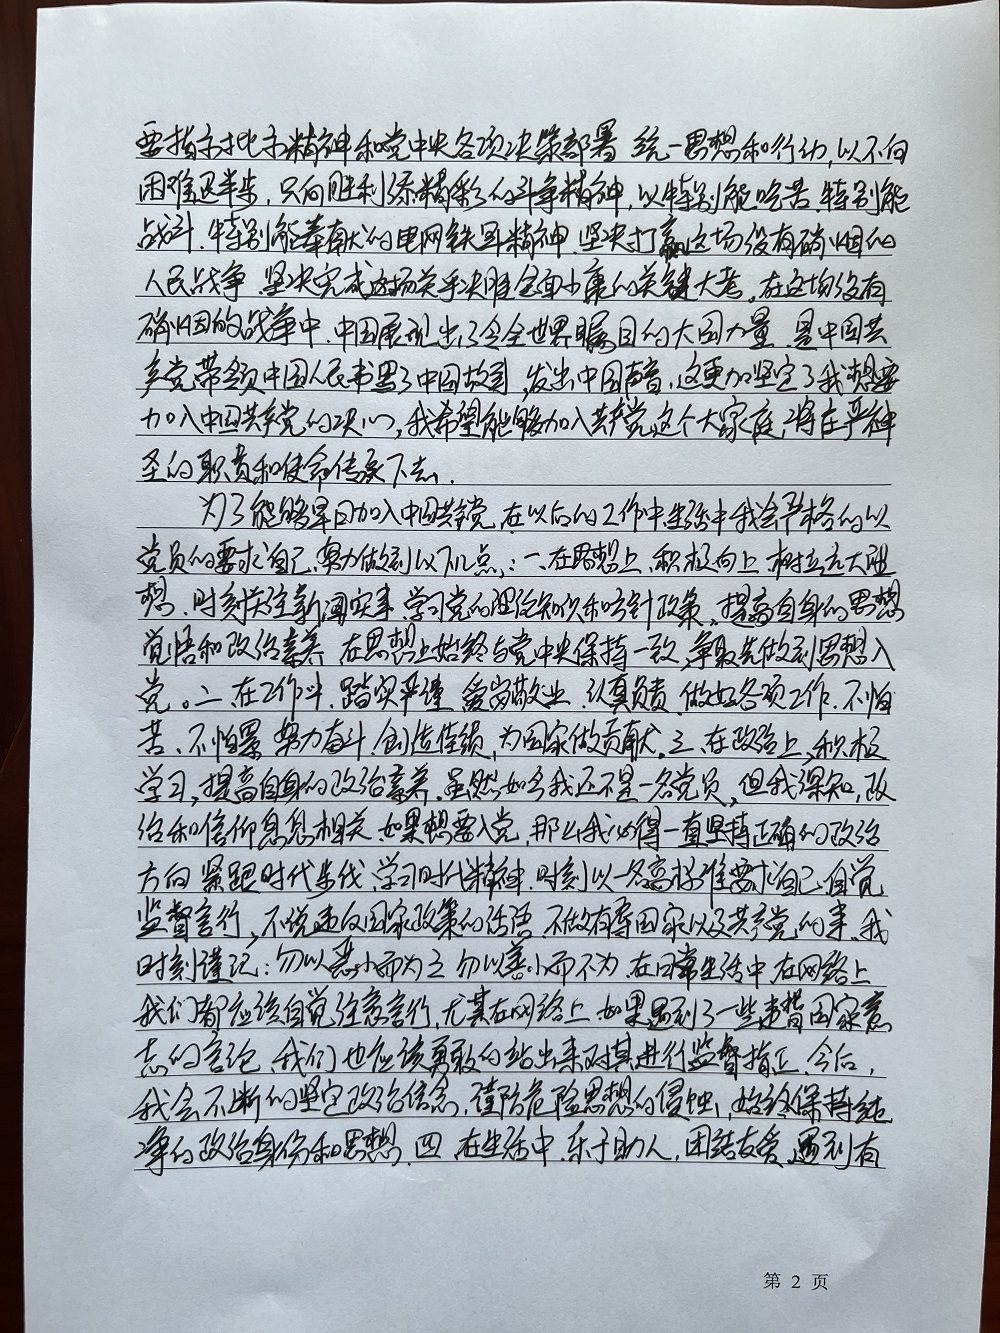 要指示批示精神和党中央各项决策部署 统一思想和行动,以不向
困难退半步,只向胜利添精彩的斗争精神,以特别能吃苦.特别能
战斗.特别能奉献的电网铁军精神.坚决打赢这场没有硝烟的
人民战争.坚决完成这场关乎决胜全面小康的关键大考。在这场没有
硝烟的战争中.中国展现出了令全世界瞩目的大国力量.是中国共
产党带领中国人民书写了中国故事,发出中国声音,这更加坚定了我想要
加入中国共产党的决心,我希望能够加入共产党这个大家庭,将庄严神
圣的职责和使命传承下去.
为了能够早日加入中国共产党,在以后的工作中生活中我会严格的以
党员的要求自己,努力做到以下几点,:一.在思想上.积极向上 树立远大理
想.时刻关注新闻实事.学习党的理论知识和方针政策,提高自身的思想
觉悟和政治素养.在思想上始终与党中央保持一致,争取先做到思想入
党。二.在工作中.踏实严谨.爱岗敬业.认真负责.做好各项工作.不怕
苦、不怕累 努力奋斗.创造佳绩,为国家做贡献。三、在政治上,积极
学习,提高自身的政治素养.虽然如今我还不是一名党员,但我深知,政
治和信仰息息相关.如果想要入党,那么我必得一直坚持正确的政治
方向 紧跟时代步伐,学习时代精神.时刻以一名高标准要求自己.自觉
监督言行,不说违反国家政策的话语.不做有辱国家以及共产党的事.我
时刻谨记:勿以恶小而为之 勿以善小而不为.在日常生活中.在网络上
我们都应该自觉注意言行,尤其在网络上.如果遇到了一些违背国家意
志的言论.我们也应该勇敢的站出来对其进行监督指正.今后,
我会不断的坚定政治信念.谨防危险思想的侵蚀,始终保持纯
净的政治身份和思想.四.在生活中.乐于助人,团结友爱.遇到有
第 2 页